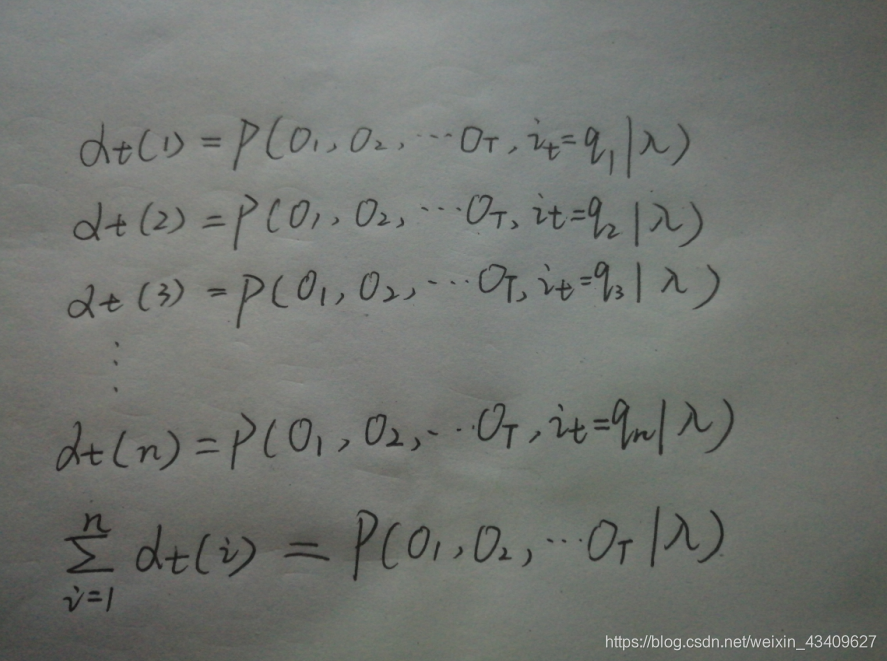 αt(1) = P(O1, O2, ··· OT, it=q1|λ)
αt(2) = P(O1, O2, ··· OT, it=q2|λ)
αt(3) = P(O1, O2, ··· OT, it=q3|λ)
⋮
αt(n) = P(O1, O2, ··· OT, it=qn|λ)
n
∑ αt(i) = P(O1, O2, ··· OT|λ)
i=1
https://blog.csdn.net/weixin_43409627